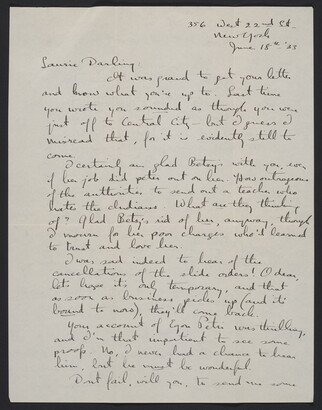 356 West 22nd St.
New York
June 18th '33
Laurie Darling
It was grand to get your letter
and know what you're up to. Last time
you wrote you sounded as though you were
just off to Central City - but I guess I
misread that, for it is evidently still to
come.
I certainly am glad Betsy's with you, even
if her job did peter out on her. How outrageous
of the authorities to send out a teacher who
hates the Indians. What are they thinking
of? Glad Betsy's rid of her, anyway, though
I mourn for her poor charges who'd learned
to trust and love her.
I was sad indeed to hear of the
cancellations of the slide orders! O dear,
let's hope it's only temporary, and that
as soon as business picks up (and it's
bound to now), they'll come back.
Your account of Egon Petri was thrilling,
and I'm that impatient to see some
proofs. No, I never had a chance to hear
him, but he must be wonderful.
Don't fail, will you, to send me some